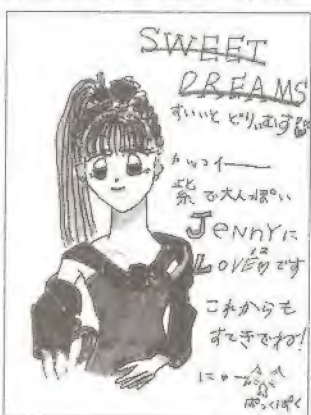 SWEET
DREAMS
すいーと どりぃむす
カッコイーー
紫で大人っぽい
JENNYに
LOVEにです
これからも
すてきでネ!
にゃー
ぱっくぱく